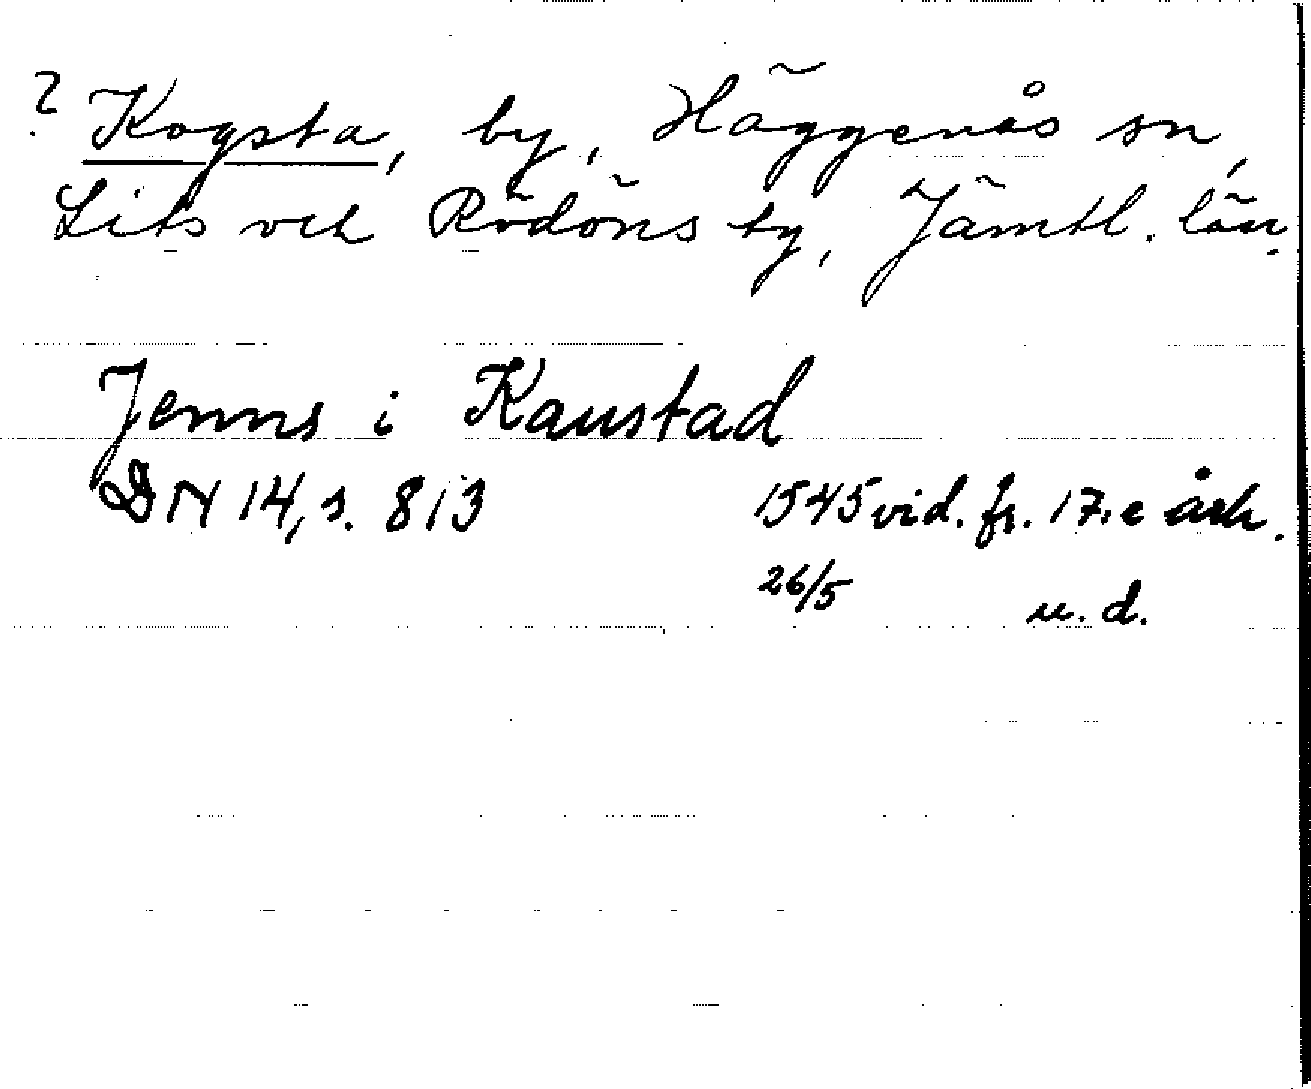 ? Kogsta, by, Häggenås sn,
Lits och Rödöns tg, Jämtl. län.
Jenns i Kaustad
DN 14, s. 813 1545 vid. fr. 17:e årh.
26/5 u. d.